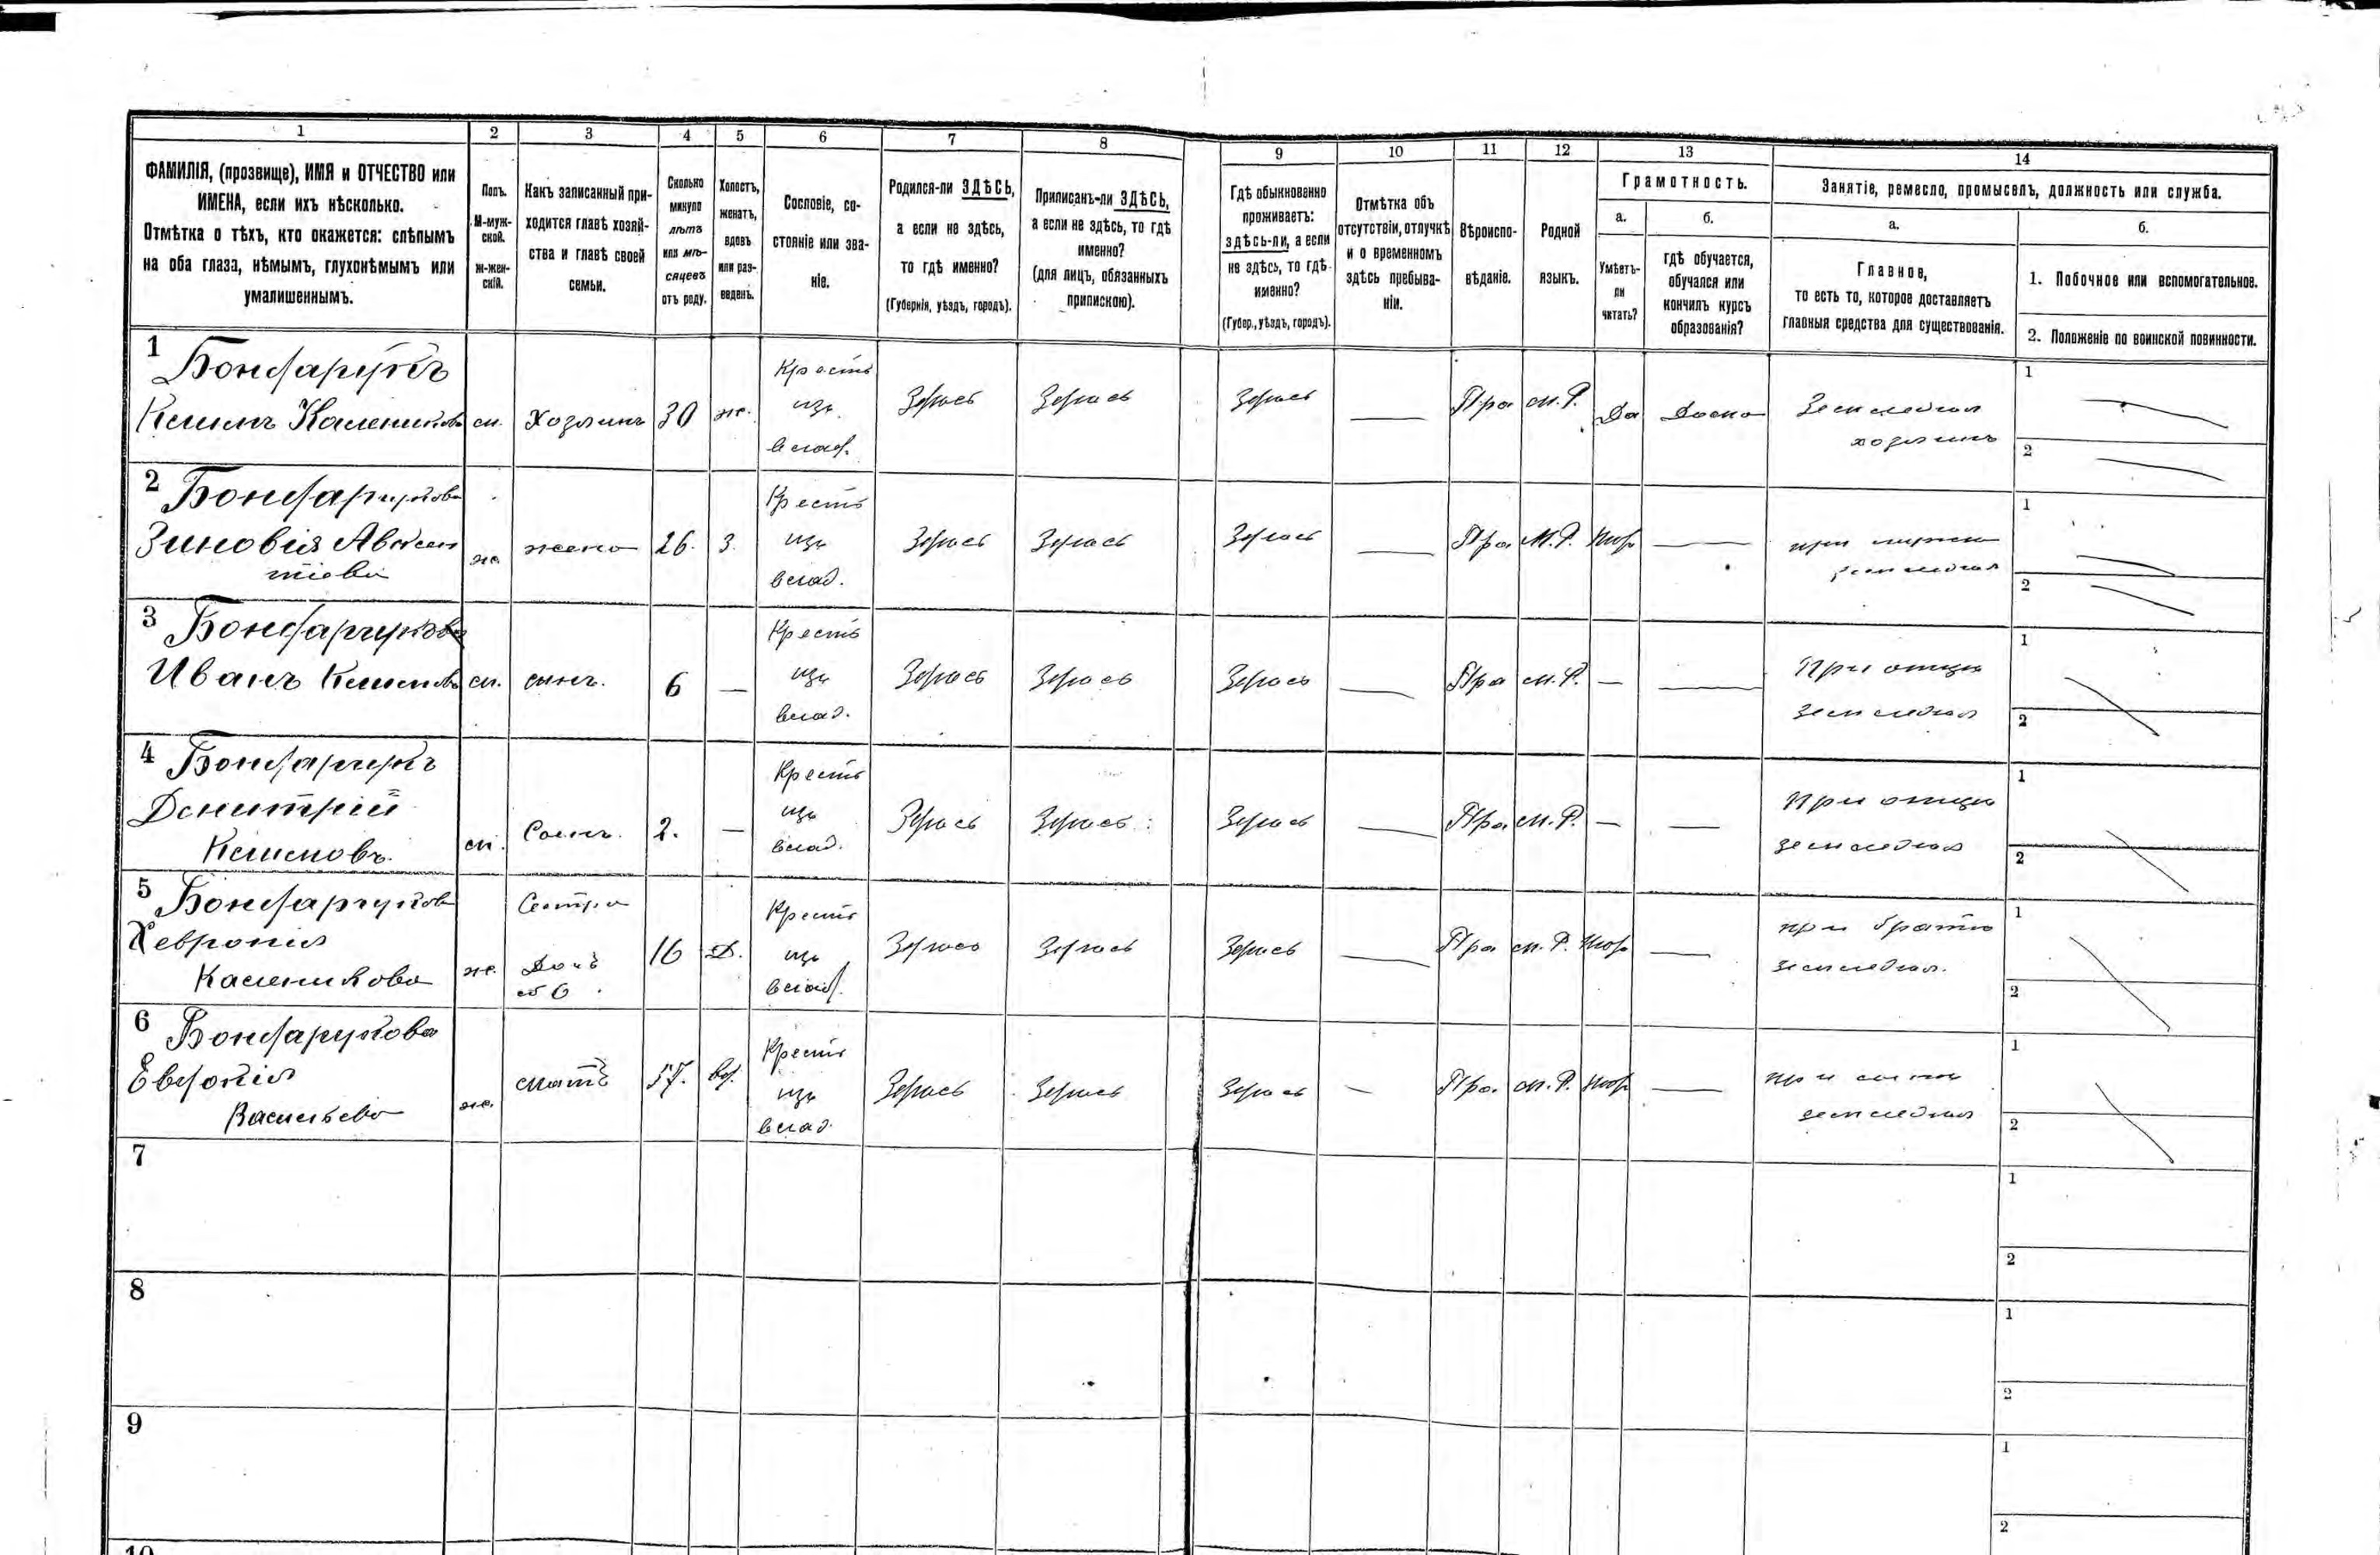 1 2 3 4 5 6 7 8 9 10 11 12 13 14
ФАМИЛІЯ, (прозвище), ИМЯ и ОТЧЕСТВО или
ИМЕНА, если ихъ нѣсколько.
Отмѣтка о тѣхъ, кто окажется: слѣпымъ
на оба глаза, нѣмымъ, глухонѣмымъ или
умалишеннымъ.
Полъ.
М-муж-
ской.
ж-жен-
скій.
Какъ записанный при-
ходится главѣ хозяй-
ства и главѣ своей
семьи.
Сколько
минуло
лѣтъ
или мѣ-
сяцевъ
отъ роду.
Холостъ,
женатъ,
вдовъ
или раз-
веденъ.
Сословіе, со-
стояніе или зва-
ніе.
Родился-ли ЗДѢСЬ,
а если не здѣсь,
то гдѣ именно?
(Губернія, уѣздъ, городъ).
Приписанъ-ли ЗДѢСЬ,
а если не здѣсь, то гдѣ
именно?
(для лицъ, обязанныхъ
припискою).
Гдѣ обыкновенно
проживаетъ:
здѣсь-ли, а если
не здѣсь, то гдѣ
именно?
(Губер., уѣздъ, городъ).
Отмѣтка объ
отсутствіи, отлучкѣ
и о временномъ
здѣсь пребыва-
ніи.
Вѣроиспо-
вѣданіе.
Родной
языкъ.
Грамотность.
а.
Умѣетъ-
ли
читать?
б.
гдѣ обучается,
обучался или
кончилъ курсъ
образованія?
Занятіе, ремесло, промыселъ, должность или служба.
а.
Главное,
то есть то, которое доставляетъ
главныя средства для существованія.
б.
1. Побочное или вспомогательное.
2. Положеніе по воинской повинности.
1 Бондарукъ
Климъ Калениковъ м. Хозяинъ 30 ж.
Кресть
изъ
влад.
Здѣсь Здѣсь Здѣсь — Пра м. Р. Да
хозяинъ
1
2
2 Бондарукова
Зиновія
ж. жена 26. З.
Кресть
изъ
влад.
Здѣсь Здѣсь Здѣсь — Пра М. Р.
—
1
2
3
Иванъ Климовъ м. сынъ. 6 —
Кресть
изъ
влад.
Здѣсь Здѣсь Здѣсь — Пра м. Р. — —
При отцѣ
1
2
4 Бондарукъ
Дмитрій
Климовъ.
м. Сынъ. 2. —
Кресть
изъ
влад.
Здѣсь Здѣсь Здѣсь — Пра м. Р. — —
При отцѣ
1
2
5 Бондарукова
Хевронія
Каленикова
ж.
Сестра
16 Д.
Кресть
изъ
влад.
Здѣсь Здѣсь Здѣсь — Пра м. Р.
—
при братѣ
1
2
6 Бондарукова
Евдокія
Васильева
ж. мать 57. вд.
Кресть
изъ
влад.
Здѣсь Здѣсь Здѣсь — Пра. м. Р.
—
при сынѣ
1
2
7
1
2
8
1
2
9
1
2
10